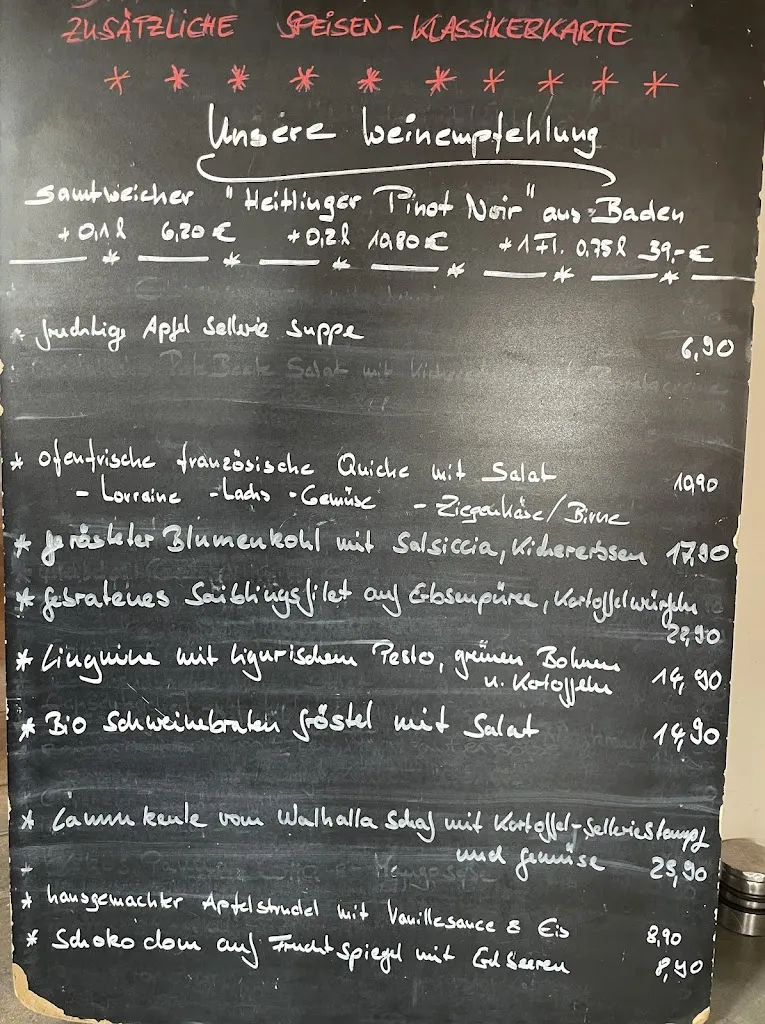 ZUSÄTZLICHE SPEISEN-KLASSIKERKARTE
Unsere Weinempfehlung
Samtweicher "Heitlinger Pinot Noir" aus Baden
* 0,1 l 6,20 € * 0,2 l 10,80 € * 1 Fl. 0,75 l 39,- €
* fruchtige Apfel Sellerie Suppe
6,90
* Ofenfrische französische Quiche mit Salat 10,90
- Lorraine - Lachs - Gemüse - Ziegenkäse/Birne
* gerösteter Blumenkohl mit Salsiccia, Kichererbsen 17,90
* gebratenes Saiblingsfilet auf Erbsenpüree, Kartoffelwürfeln
22,90
* Linguine mit ligurischem Pesto, grünen Bohnen
u. Kartoffeln 14,90
* Bio Schweinebraten Gröstel mit Salat 14,90
* Lammkeule vom Walhalla Schaf mit Kartoffel-Selleriestampf
und Gemüse 25,90
* hausgemachter Apfelstrudel mit Vanillesauce & Eis 8,90
* Schokodom auf Fruchtspiegel mit Erdbeeren 8,90